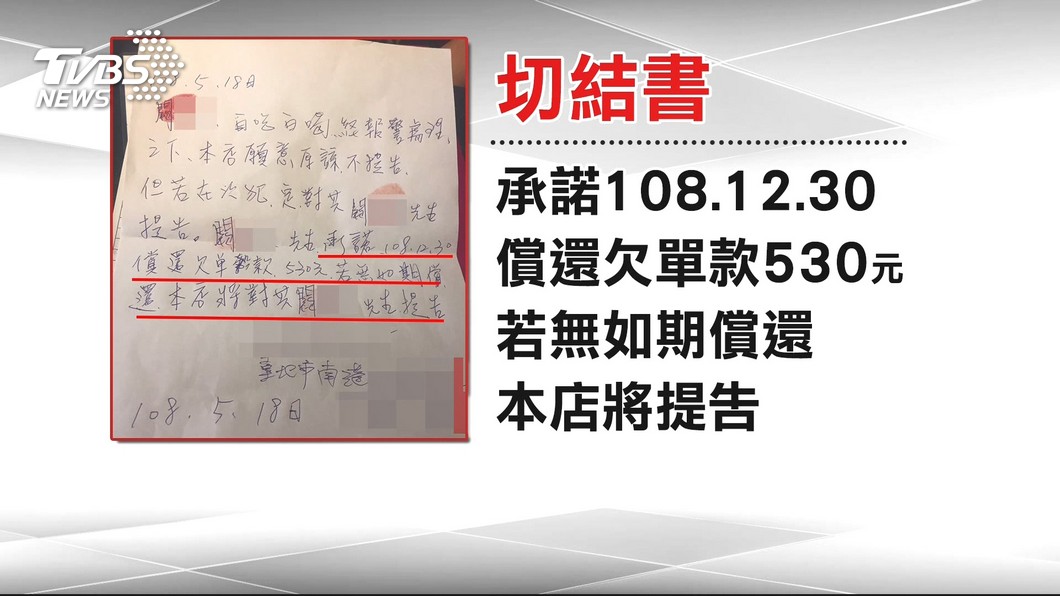 TVBS
NEWS
切結書
承諾108.12.30
償還欠單款530元
若無如期償還
本店將提告
8.5.18日
闕
、白吃白喝,經報警處理,
之下、本店願意原諒、不提告,
但若在次犯,定對其闕 先生
提告。闕 先生 承諾 108.12.30
償還欠单款 530元,若無如期償
還,本店將對其闕 先生提告
臺北市南港
108. 5. 18日